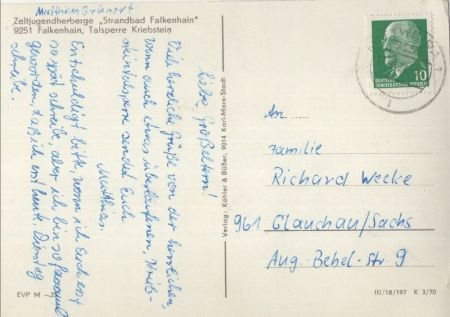 Matthias
Zeltjugendherberge „Strandbad Falkenhain"
9251 Falkenhain, Talsperre Kriebstein
Liebe Großeltern!
Viele herzliche Grüße von der herrlichen,
wenn auch etwas überlaufenen, Krieb-
steintalsperre sendet Euch
Matthias.
Entschuldigt bitte, wenn ich Euch erst
so spät schreibe, aber ich bin so
geworden, daß ich erst heute, Dienstag
schreibe.
EVP M -,25
Verlag: Köhler & Büßer, 9014 Karl-Marx-Stadt
10
DEUTSCHE
DEMOKRATISCHE REPUBLIK
An ....
Familie
Richard Wecke
961 Glauchau/Sachs
Aug.-Bebel-Str. 9
III/18/197 K 3/70